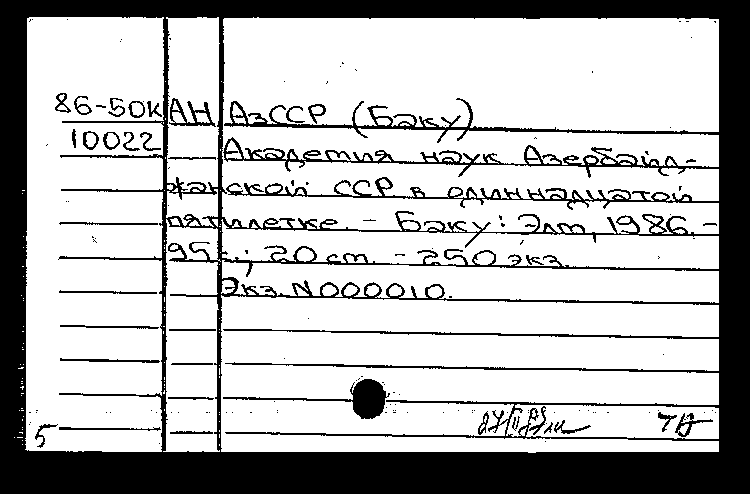 86-50К АН АзССР (Баку)
10022 Академия наук Азербайд-
жанской ССР в одиннадцатой
пятилетке. - Баку: Элм, 1986. -
95 с.; 20 cm. - 250 экз.
Экз. N000010.
5